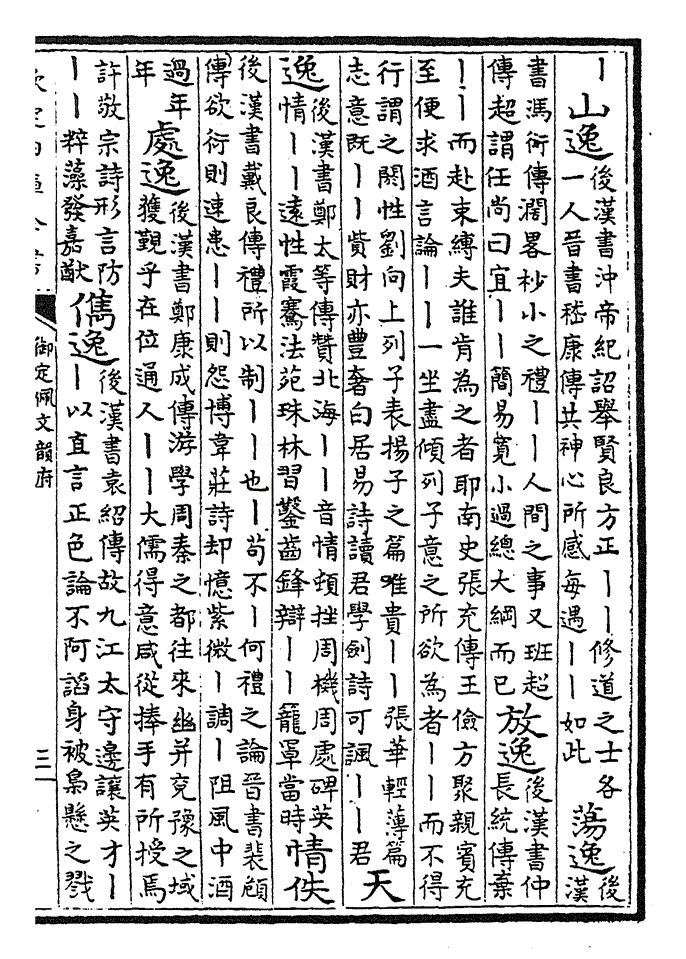 丨山逸後漢書沖帝紀詔舉賢良方正丨丨修道之士各
一人晉書嵇康傳共神心所感每遇丨丨如此蕩逸後漢
書馮衍傳濶畧杪小之禮丨丨人間之事又班超
傳超謂任尚曰宜丨丨簡易寛小過總大綱而已放逸後漢書仲
長統傳棄
丨丨而赴束縛夫誰肯為之者耶南史張充傳王儉方聚親賓充
至便求酒言論丨丨一坐盡傾列子意之所欲為者丨丨而不得
行謂之閼性劉向上列子表揚子之篇唯貴丨丨張華輕薄篇
志意既丨丨貲財亦豐奢白居易詩讀君學劍詩可諷丨丨君天
逸後漢書鄭太等傳贊北海丨丨音情頓挫周機周處碑英
情丨丨遠性霞騫法苑珠林習鑿齒鋒辯丨丨籠罩當時情佚
後漢書戴良傳禮所以制丨丨也丨苟不丨何禮之論晉書裴頠
傳欲衍則速患丨丨則怨博韋莊詩却憶紫微丨調丨阻風中酒
過年
年處逸後漢書鄭康成傳游學周秦之都往來幽并兗豫之域
獲覲乎在位通人丨丨大儒得意咸從捧手有所授焉
許敬宗詩形言防
丨丨粹藻發嘉猷儁逸後漢書袁紹傳故九江太守邊讓英才丨
丨以直言正色論不阿諂身被梟懸之戮
欽定四庫全書
御定佩文韻府
三